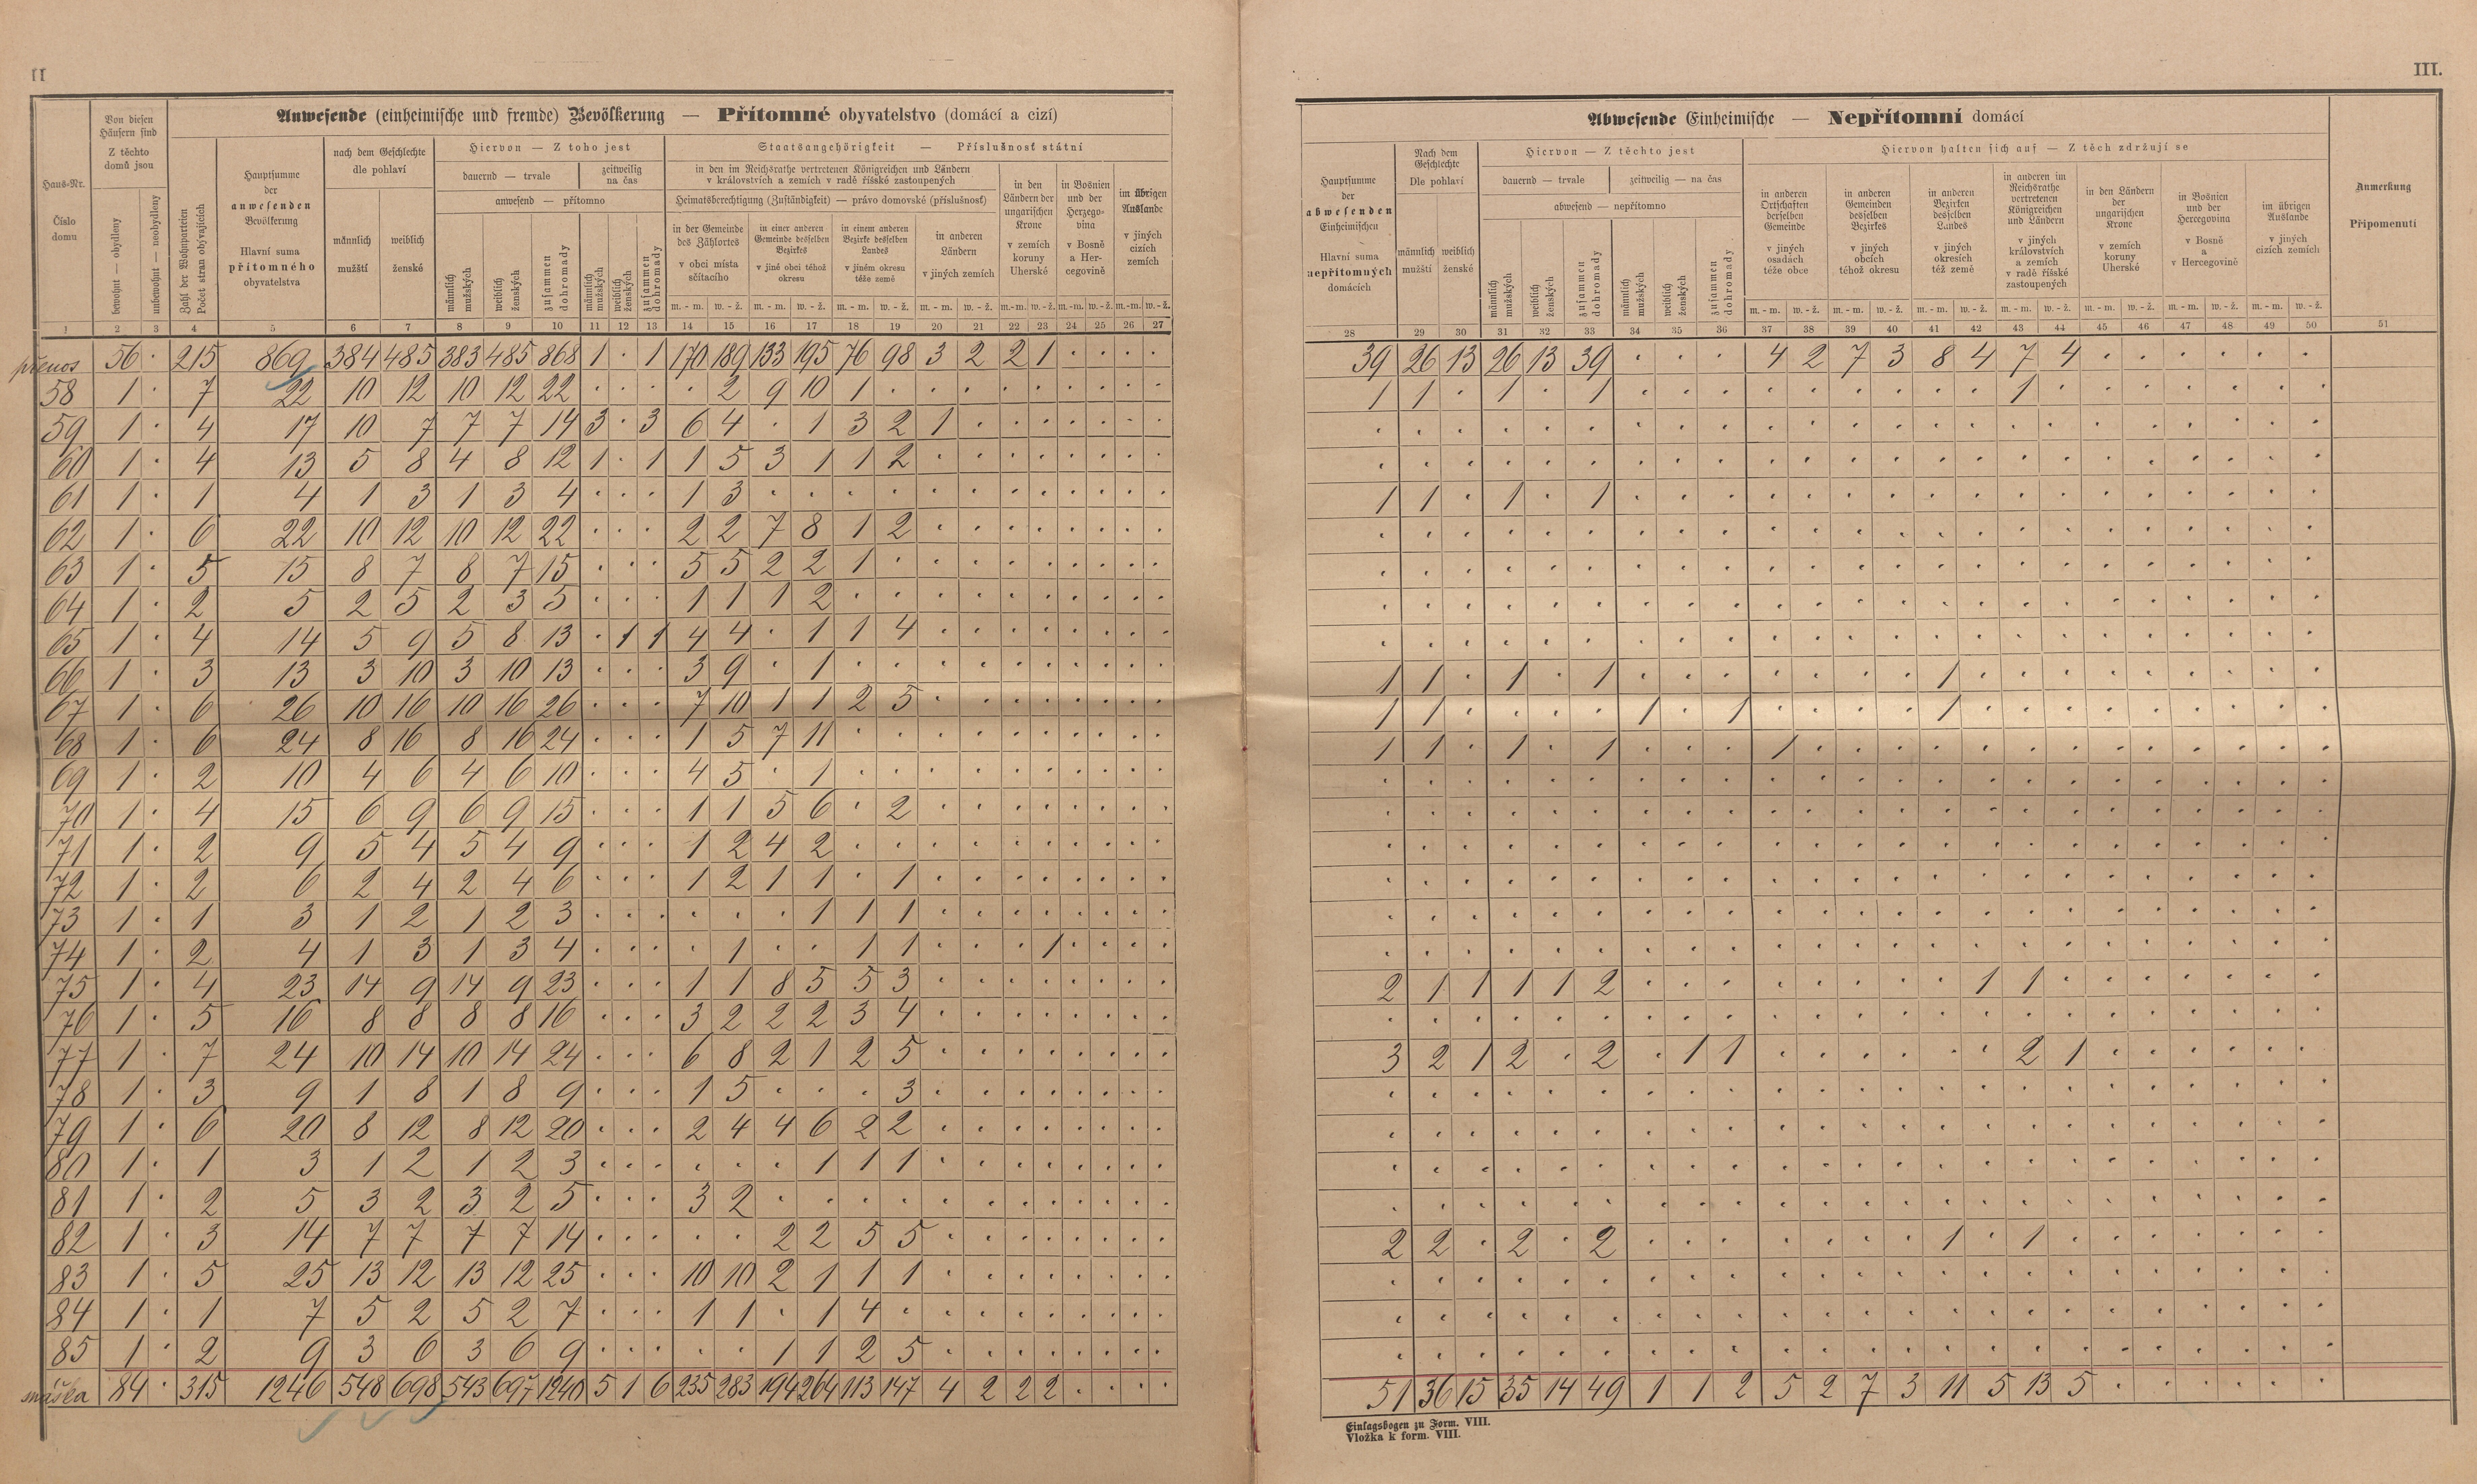 II
III.
Anwesende (einheimische und fremde) Bevölkerung — Přítomné obyvatelstvo (domácí a cizí)
Haus-Nr.
Číslo
domu
Von diesen
Häusern sind
Z těchto
domů jsou
bewohnt — obydleny
unbewohnt — neobydleny
Zahl der Wohnparteien
Počet stran obývajících
Hauptsumme
der
anwesenden
Bevölkerung
Hlavní suma
přítomného
obyvatelstva
nach dem Geschlechte
dle pohlaví
männlich
mužští
weiblich
ženské
Hiervon — Z toho jest
dauernd — trvale
zeitweilig
na čas
anwesend — přítomno
männlich
mužských
weiblich
ženských
zusammen
dohromady
männlich
mužských
weiblich
ženských
zusammen
dohromady
Staatsangehörigkeit — Příslušnosť státní
in den im Reichsrathe vertretenen Königreichen und Ländern
v královstvích a zemích v radě říšské zastoupených
Heimatsberechtigung (Zuständigkeit) — právo domovské (příslušnosť)
in der Gemeinde
des Zählortes
v obci místa
sčítacího
in einer anderen
Gemeinde desselben
Bezirkes
v jiné obci téhož
okresu
in einem anderen
Bezirke desselben
Landes
v jiném okresu
téže země
in anderen
Ländern
v jiných zemích
in den
Ländern der
ungarischen
Krone
v zemích
koruny
Uherské
in Bosnien
und der
Herzego-
vina
v Bosně
a Her-
cegovině
im übrigen
Auslande
v jiných
cizích
zemích
m. - m. w. - ž. m. - m. w. - ž. m. - m. w. - ž. m. - m. w. - ž. m.-m. w.-ž. m.-m. w.-ž. m.-m. w.-ž.
1 2 3 4 5 6 7 8 9 10 11 12 13 14 15 16 17 18 19 20 21 22 23 24 25 26 27
přenos 56 · 215 869 384 485 383 485 868 1 · 1 170 189 133 195 76 98 3 2 2 1 · · · ·
58 1 · 7 22 10 12 10 12 22 · · · · 2 9 10 1 · · · · · · · · ·
59 1 · 4 17 10 7 7 7 14 3 · 3 6 4 · 1 3 2 1 · · · · · · ·
60 1 · 4 13 5 8 4 8 12 1 · 1 1 5 3 1 1 2 · · · · · · · ·
61 1 · 1 4 1 3 1 3 4 · · · 1 3 · · · · · · · · · · · ·
62 1 · 6 22 10 12 10 12 22 · · · 2 2 7 8 1 2 · · · · · · · ·
63 1 · 5 15 8 7 8 7 15 · · · 5 5 2 2 1 · · · · · · · · ·
64 1 · 2 5 2 5 2 3 5 · · · 1 1 1 2 · · · · · · · · · ·
65 1 · 4 14 5 9 5 8 13 · 1 1 4 4 · 1 1 4 · · · · · · · ·
66 1 · 3 13 3 10 3 10 13 · · · 3 9 · 1 · · · · · · · · · ·
67 1 · 6 26 10 16 10 16 26 · · · 7 10 1 1 2 5 · · · · · · · ·
68 1 · 6 24 8 16 8 16 24 · · · 1 5 7 11 · · · · · · · · · ·
69 1 · 2 10 4 6 4 6 10 · · · 4 5 · 1 · · · · · · · · · ·
70 1 · 4 15 6 9 6 9 15 · · · 1 1 5 6 · 2 · · · · · · · ·
71 1 · 2 9 5 4 5 4 9 · · · 1 2 4 2 · · · · · · · · · ·
72 1 · 2 6 2 4 2 4 6 · · · 1 2 1 1 · 1 · · · · · · · ·
73 1 · 1 3 1 2 1 2 3 · · · · · · 1 1 1 · · · · · · · ·
74 1 · 2 4 1 3 1 3 4 · · · · 1 · · 1 1 · · · 1 · · · ·
75 1 · 4 23 14 9 14 9 23 · · · 1 1 8 5 5 3 · · · · · · · ·
76 1 · 5 16 8 8 8 8 16 · · · 3 2 2 2 3 4 · · · · · · · ·
77 1 · 7 24 10 14 10 14 24 · · · 6 8 2 1 2 5 · · · · · · · ·
78 1 · 3 9 1 8 1 8 9 · · · 1 5 · · · 3 · · · · · · · ·
79 1 · 6 20 8 12 8 12 20 · · · 2 4 4 6 2 2 · · · · · · · ·
80 1 · 1 3 1 2 1 2 3 · · · · · · 1 1 1 · · · · · · · ·
81 1 · 2 5 3 2 3 2 5 · · · 3 2 · · · · · · · · · · · ·
82 1 · 3 14 7 7 7 7 14 · · · · · 2 2 5 5 · · · · · · · ·
83 1 · 5 25 13 12 13 12 25 · · · 10 10 2 1 1 1 · · · · · · · ·
84 1 · 1 7 5 2 5 2 7 · · · 1 1 · 1 4 · · · · · · · · ·
85 1 · 2 9 3 6 3 6 9 · · · · · 1 1 2 5 · · · · · · · ·
84 · 315 1246 548 698 543 697 1240 5 1 6 235 283 194 264 113 147 4 2 2 2 · · · ·
Abwesende Einheimische — Nepřítomní domácí
Hauptsumme
der
abwesenden
Einheimischen
Hlavní suma
nepřítomných
domácích
Nach dem
Geschlechte
Dle pohlaví
männlich
mužští
weiblich
ženské
Hiervon — Z těchto jest
dauernd — trvale
zeitweilig — na čas
abwesend — nepřítomno
männlich
mužských
weiblich
ženských
zusammen
dohromady
männlich
mužských
weiblich
ženských
zusammen
dohromady
Hiervon halten sich auf — Z těch zdržují se
in anderen
Ortschaften
derselben
Gemeinde
v jiných
osadách
téže obce
in anderen
Gemeinden
desselben
Bezirkes
v jiných
obcích
téhož okresu
in anderen
Bezirken
desselben
Landes
v jiných
okresích
též země
in anderen im
Reichsrathe
vertretenen
Königreichen
und Ländern
v jiných
královstvích
a zemích
v radě říšské
zastoupených
in den Ländern
der
ungarischen
Krone
v zemích
koruny
Uherské
in Bosnien
und der
Hercegovina
v Bosně
a
v Hercegovině
im übrigen
Auslande
v jiných
cizích zemích
Anmerkung
Připomenutí
m. - m. w. - ž. m. - m. w. - ž. m. - m. w. - ž. m. - m. w. - ž. m. - m. w. - ž. m. - m. w. - ž. m. - m. w. - ž.
28 29 30 31 32 33 34 35 36 37 38 39 40 41 42 43 44 45 46 47 48 49 50 51
39 26 13 26 13 39 · · · 4 2 7 3 8 4 7 4 · · · · · ·
1 1 · 1 · 1 · · · · · · · · · 1 · · · · · · ·
· · · · · · · · · · · · · · · · · · · · · · ·
· · · · · · · · · · · · · · · · · · · · · · ·
1 1 · 1 · 1 · · · · · · · · · · · · · · · · ·
· · · · · · · · · · · · · · · · · · · · · · ·
· · · · · · · · · · · · · · · · · · · · · · ·
· · · · · · · · · · · · · · · · · · · · · · ·
· · · · · · · · · · · · · · · · · · · · · · ·
1 1 · 1 · 1 · · · · · · · 1 · · · · · · · · ·
1 1 · · · · 1 · 1 · · · · 1 · · · · · · · · ·
1 1 · 1 · 1 · · · 1 · · · · · · · · · · · · ·
· · · · · · · · · · · · · · · · · · · · · · ·
· · · · · · · · · · · · · · · · · · · · · · ·
· · · · · · · · · · · · · · · · · · · · · · ·
· · · · · · · · · · · · · · · · · · · · · · ·
· · · · · · · · · · · · · · · · · · · · · · ·
· · · · · · · · · · · · · · · · · · · · · · ·
2 1 1 1 1 2 · · · · · · · · 1 1 · · · · · · ·
· · · · · · · · · · · · · · · · · · · · · · ·
3 2 1 2 · 2 · 1 1 · · · · · · 2 1 · · · · · ·
· · · · · · · · · · · · · · · · · · · · · · ·
· · · · · · · · · · · · · · · · · · · · · · ·
· · · · · · · · · · · · · · · · · · · · · · ·
· · · · · · · · · · · · · · · · · · · · · · ·
2 2 · 2 · 2 · · · · · · · 1 · 1 · · · · · · ·
· · · · · · · · · · · · · · · · · · · · · · ·
· · · · · · · · · · · · · · · · · · · · · · ·
· · · · · · · · · · · · · · · · · · · · · · ·
51 36 15 35 14 49 1 1 2 5 2 7 3 11 5 13 5 · · · · · ·
Einlagsbogen zu Form. VIII.
Vložka k form. VIII.